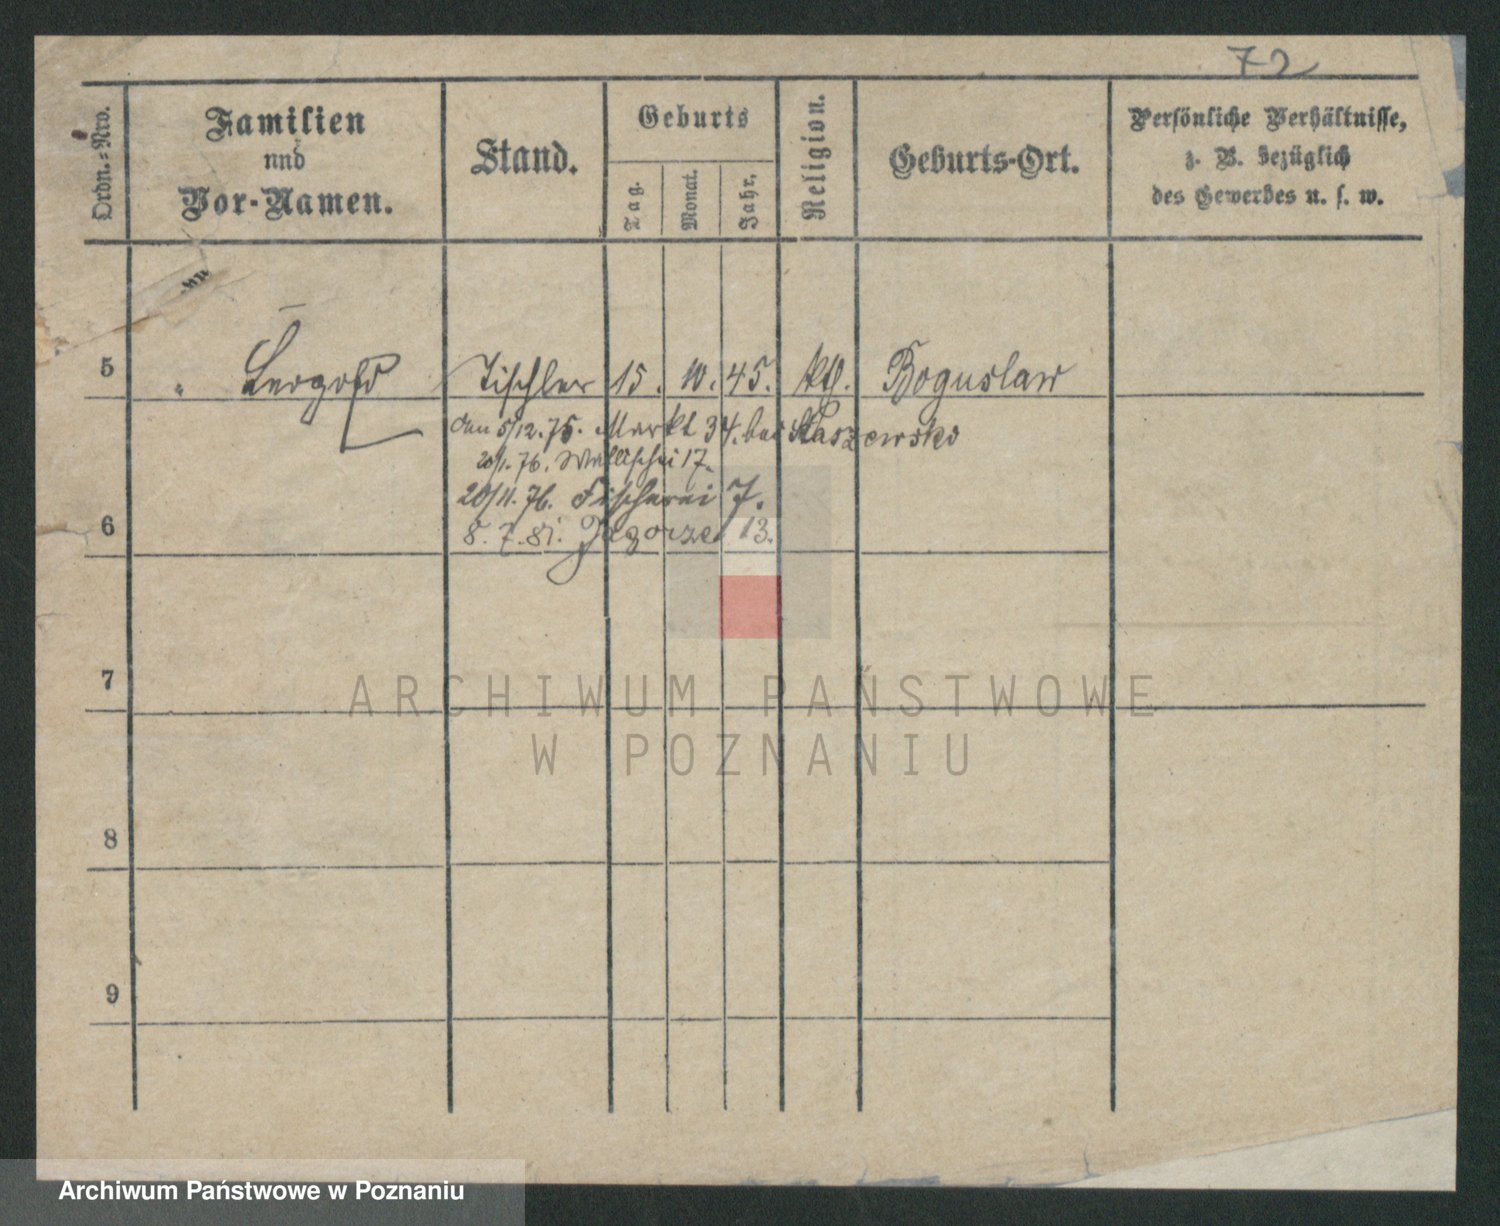 72
Ordn.-Nro.
Familien
und
Vor-Namen.
Stand.
Geburts
Tag.
Monat.
Jahr.
Religion.
Geburts-Ort.
Persönliche Verhältnisse,
z. B. bezüglich
des Gewerbes u. s. w.
5
" Leopold Tischler 15. 10. 45. kth. Boguslaw
den 5/12. 75. Markt 34. bei Staszewski
20/1. 76. Wallischei 17.
20/11. 76. Fischerei 7.
6
8. 7. 81. Zagorze 13.
7
ARCHIWUM PAŃSTWOWE
W POZNANIU
8
9
Archiwum Państwowe w Poznaniu